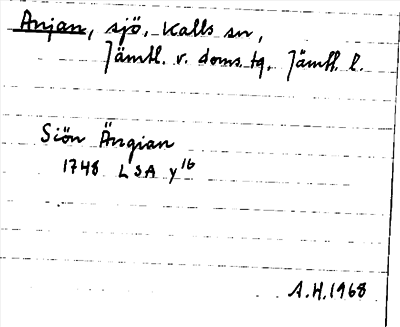 Anjan, sjö, Kalls sn,
Jämtl. v. doms. tg, Jämtl. l.
Siön Ängian
1748 LSA y16
A.H. 1968